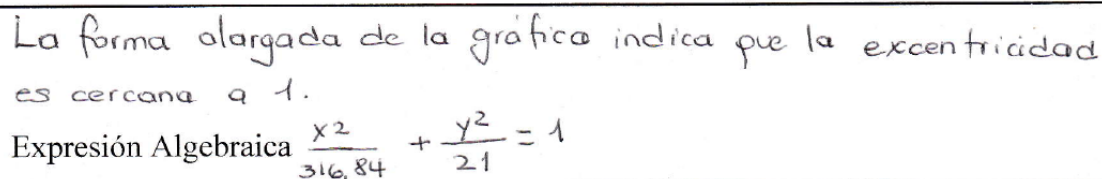 La forma alargada de la gráfica indica que la excentricidad
es cercana a 1.
Expresión Algebraica x2/316,84 + y²/21 = 1